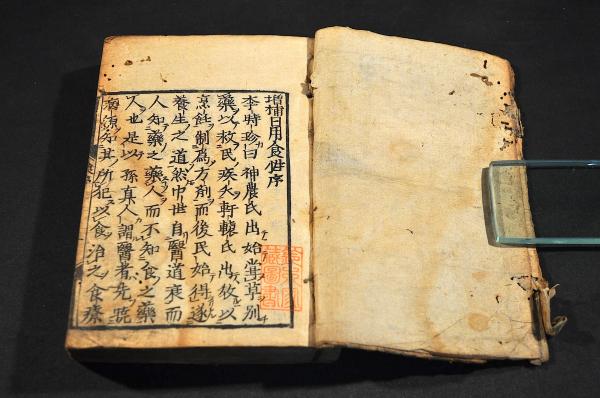 增補日用食性序
李時珍曰神農氏出始嘗草別
藥以救民疾夭軒轅氏出教以
烹飪制為方劑而後民始得遂
養生之道然中世自醫道衰而
人知藥之藥人而不知食之藥
人也是以孫真人謂醫者先曉
知其所犯以食治之食療
藏圖書